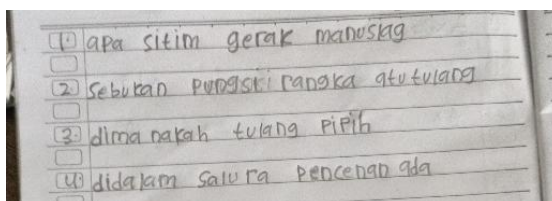 1. apa sitim gerak manusiag
2. Sebutan pungsi rangka atu tulang
3. dima nakah tulang Pipih
4. didalam salura pencenan ada